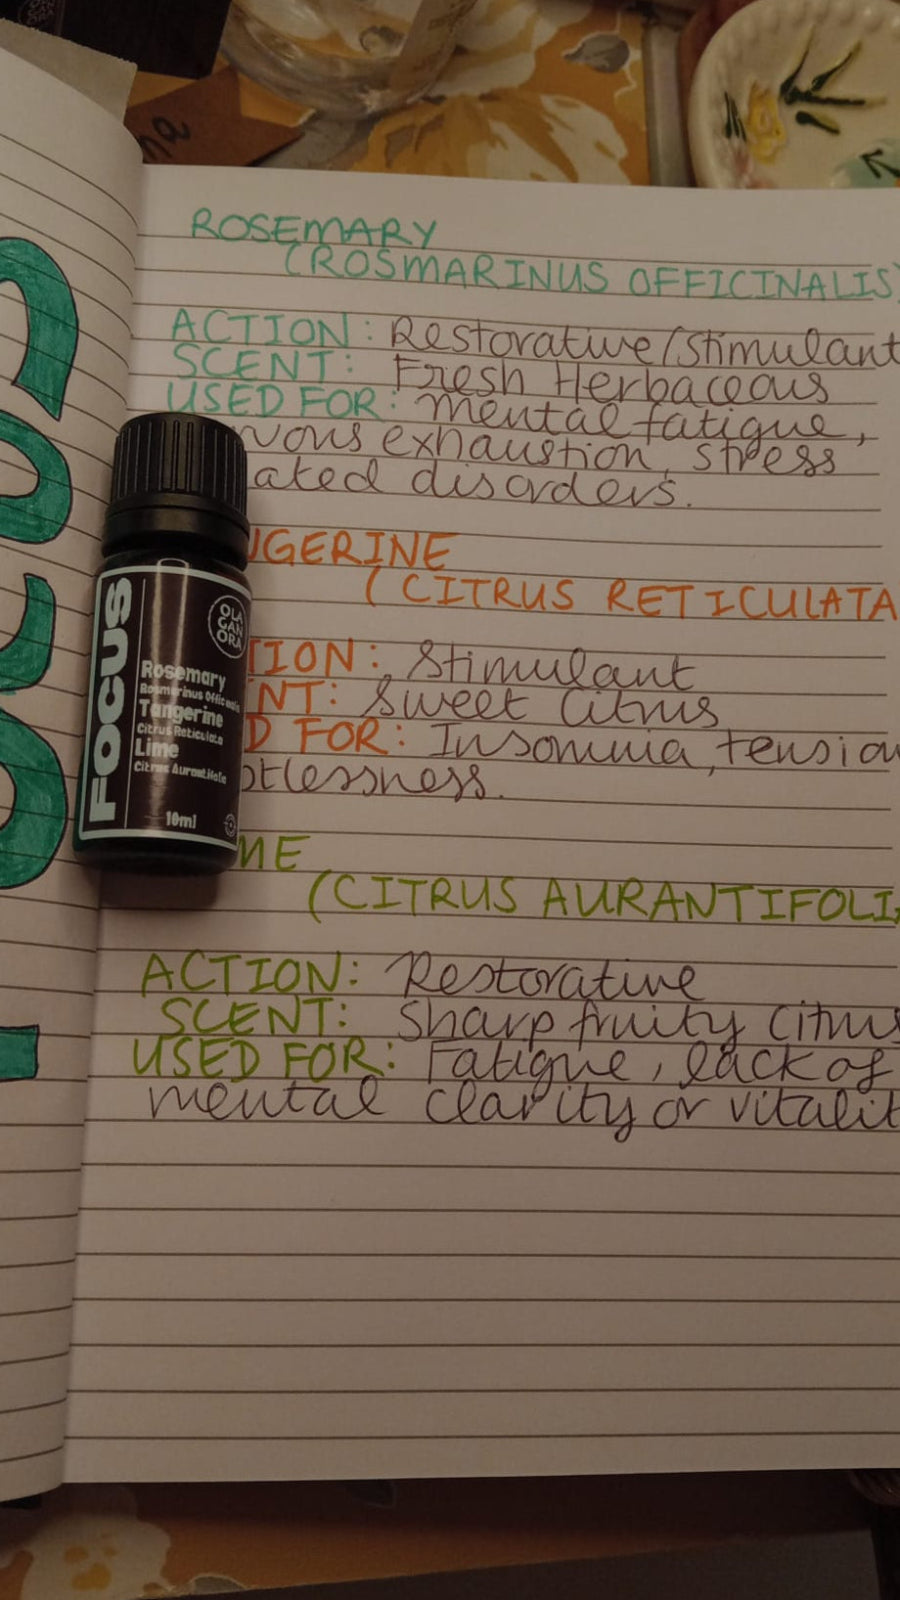 ROSEMARY
(ROSMARINUS OFFICINALIS)
ACTION: Restorative/Stimulant
SCENT: Fresh Herbaceous
USED FOR: mental fatigue,
vous exhaustion, stress
ated disorders.
NGERINE
(CITRUS RETICULATA
TION: Stimulant
NT: Sweet Citrus
D FOR: Insomnia, tension
stlessness.
ME
(CITRUS AURANTIFOLIA
ACTION: Restorative
SCENT: Sharp fruity citrus
USED FOR: Fatigue, lack of
mental clarity or vitalit
FOCUS
OLA
GAN
ORA
Rosemary
Rosmarinus Officinalis
Tangerine
Citrus Reticulata
Lime
Citrus Aurantifolia
10ml